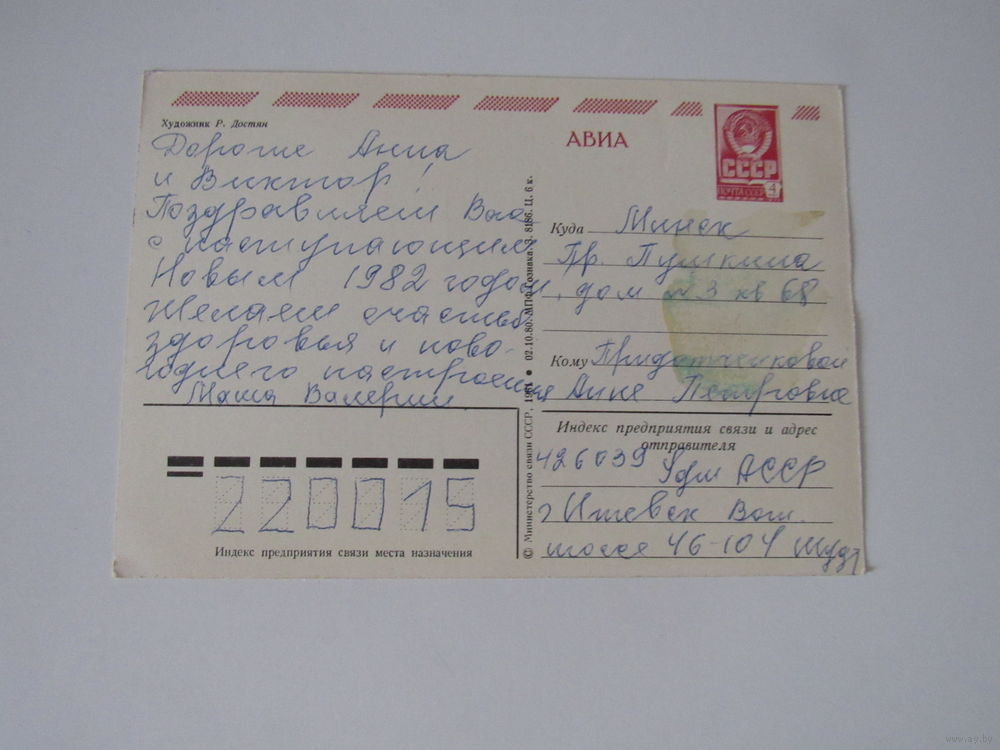 Художник Р. Достян
Дорогие Анна
и Виктор!
Поздравляем Вас
с наступающим
Новым 1982 годом,
желаем счастья
здоровья и ново-
годнего настроения
Маша Валерий
220015
Индекс предприятия связи места назначения
© Министерство связи СССР, 1981 ● 02.10.80. МПФ Гознака З. 8186. Ц. 6 к.
АВИА
СССР
ПОЧТА СССР 4
Куда Минск
Пр. Пушкина
дом № 3 кв 68
Кому Придотченковой
Анне Петровне
Индекс предприятия связи и адрес
отправителя
426039 Удм АССР
г Ижевск Вот.
шоссе 46-104
www.ay.by